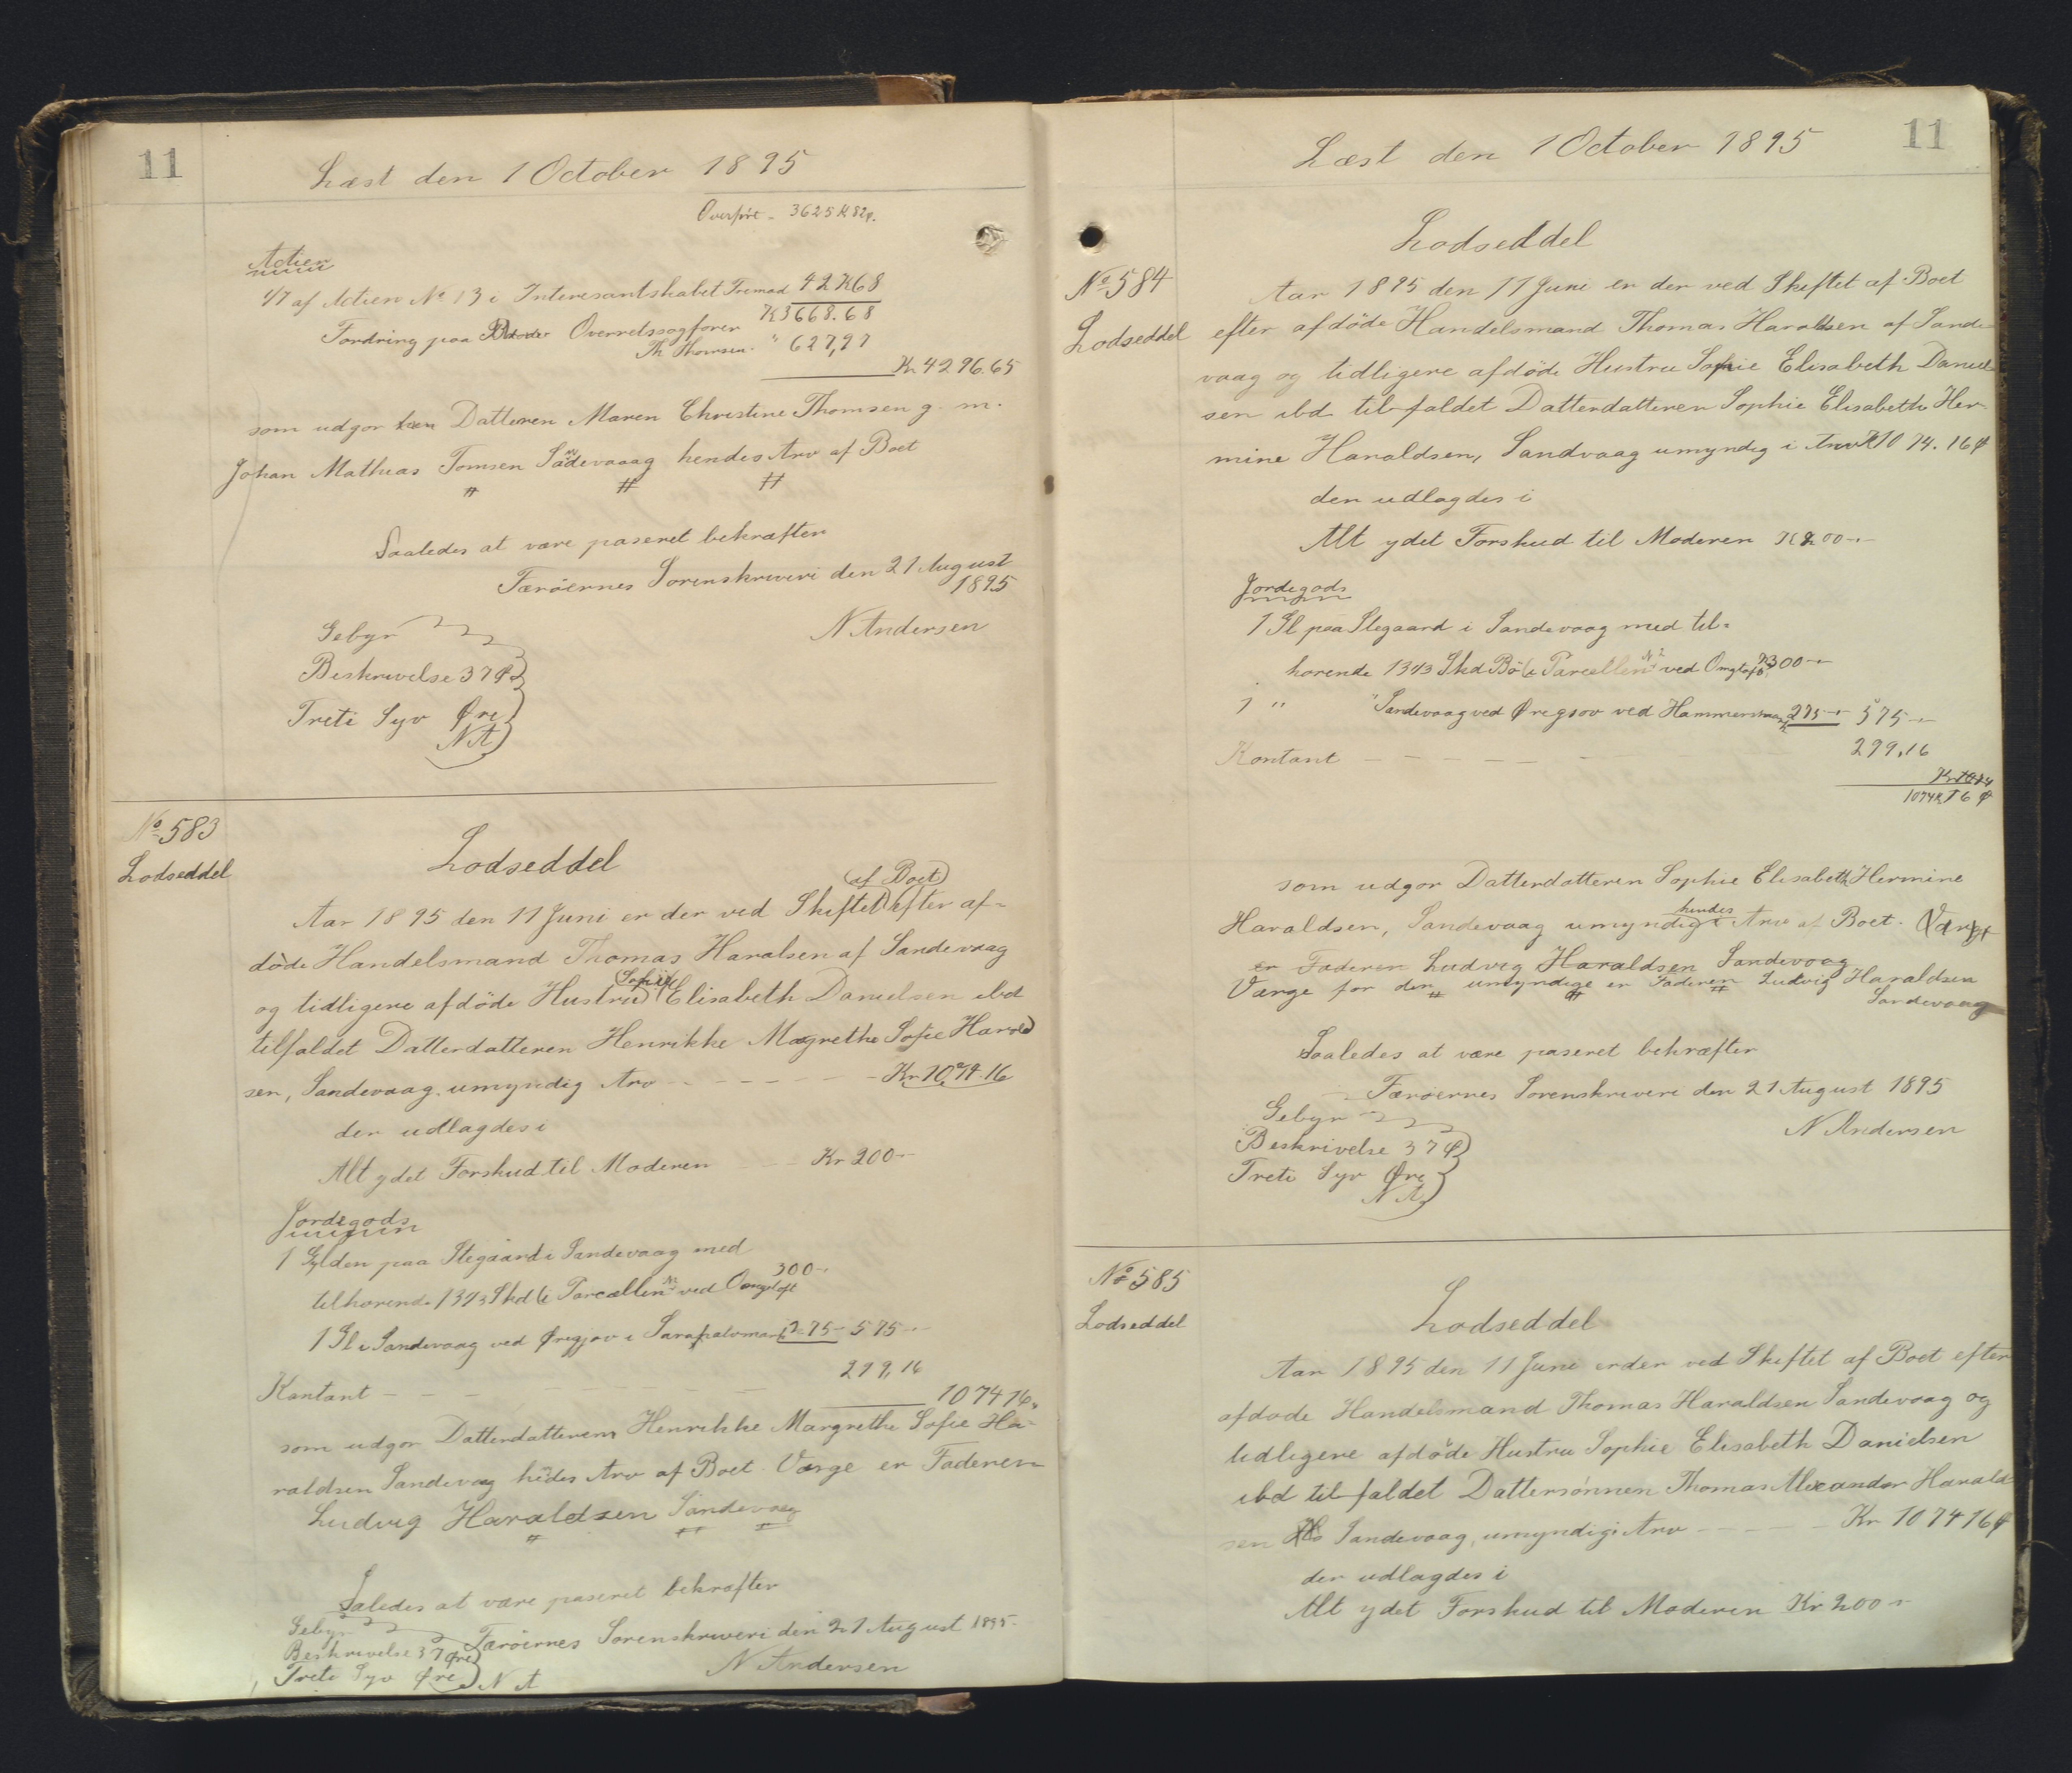 11
Læst den 1 October 1895
Overført - 3625 K 82 ø.
Actier
1/7 af Actien No 13 i Interesantskabet Tremad 42 K 68
K 3668.68
Fordring paa Overretssagfører
Th Thomsen " 627,97
Kr. 4296.65
som udgør Datteren Maren Christine Thomsen g. m.
Johan Mathias Tomsen Sadevaaag hendes Arv af Boet
Saaledes at være paseret bekræfter
Færøernes Sorenskriveri den 21 August
1895
N Andersen
Gebyr
Beskrivelse 37 Ø
Treti Syv Øre
NA
No 583
Lodseddel
Lodseddel
Aar 1895 den 11 Juni er der ved Skiftet (af Boet) efter af-
døde Handelsmand Thomas Haralsen af Sandevaag
og tidligere afdöde Hustru Sofie Elisabeth Danielsen ibd
tilfaldet Datterdatteren Henrikke Magrethe Sofie Harold
sen, Sandevaag umyndig Arv - - - - - Kr. 1074.16
der udlagdes i
Alt ydet Forskud til Moderen - - Kr 200 -
Jordegods
1 Gylden paa Stegaard i Sandevaag med
300 -
tilhorende 13 1/3 Skd (i Parcellen ved Oangeloft
1 Gl i Sandevaag ved Øregjov i 275 - 575 -
299,16
Kontant - - - - - 1074 16
som udgør Datterdatteren Henrikke Margrethe Sofie Ha-
raldsen Sandevag hedes Arv af Boet. Værge er Faderen
Ludvig Haraldsen Sandevaag
Saledes at være paseret bekræfter
Færöernes Sorenskriveri den 21 August 1895.
Gebyr
Beskrivelse 37 Øre
Treti Syv Øre NA
N Andersen
11
Læst den 1 October 1895
Lodseddel
No 584
Lodseddel
Aar 1895 den 11 Juni er der ved Skiftet af Boet
efter afdöde Handelsmand Thomas Haraldsen af Sande-
vaag og tidligere afdöde Hustru Sophie Elisabeth Daniel-
sen ibd tilfaldet Datterdatteren Sophie Elisabeth Her-
mine Haraldsen, Sandvaag umyndig i Arv K 1074.16 Ø
den udlagdes i
Alt ydet Forskud til Moderen K 200 -
Jordegods
1 Gl paa Stegaard i Sandevaag med til=
horende 13 1/3 Skd Bö (i Parcellen No 2 ved K 300 -
1 " " Sandevaag ved Øregjov ved 275 - 575 -
Kontant - - - - - - 299,16
1074 K 16 Ø
som udgør Datterdatteren Sophie Elisabeth Hermine
Haraldsen, Sandevaag umyndig hendes Arv af Boet. Værge
er Faderen Ludvig Haraldsen Sandevaag
Værge for den umyndige er Faderen Ludvig Haraldsen
Sandevaag
Saaledes at være paseret bekræfter
Færøernes Sorenskriveri den 21 August 1895
Gebyr
N Andersen
Beskrivelse 37 Ø
Treti Syv Øre
NA
No 585
Lodseddel
Lodseddel
Aar 1895 den 11 Juni er der ved Skiftet af Boet efter
afdøde Handelsmand Thomas Haraldsen Sandevaag og
tidligere afdöde Hustru Sophie Elisabeth Danielsen
ibd tilfaldet Dattersönnen Thomas Alexander Harald
sen Sandevaag, umyndig i Arv - - - - Kr 1074 16 Ø
der udlagdes i
Alt ydet Forskud til Moderen Kr 200 -